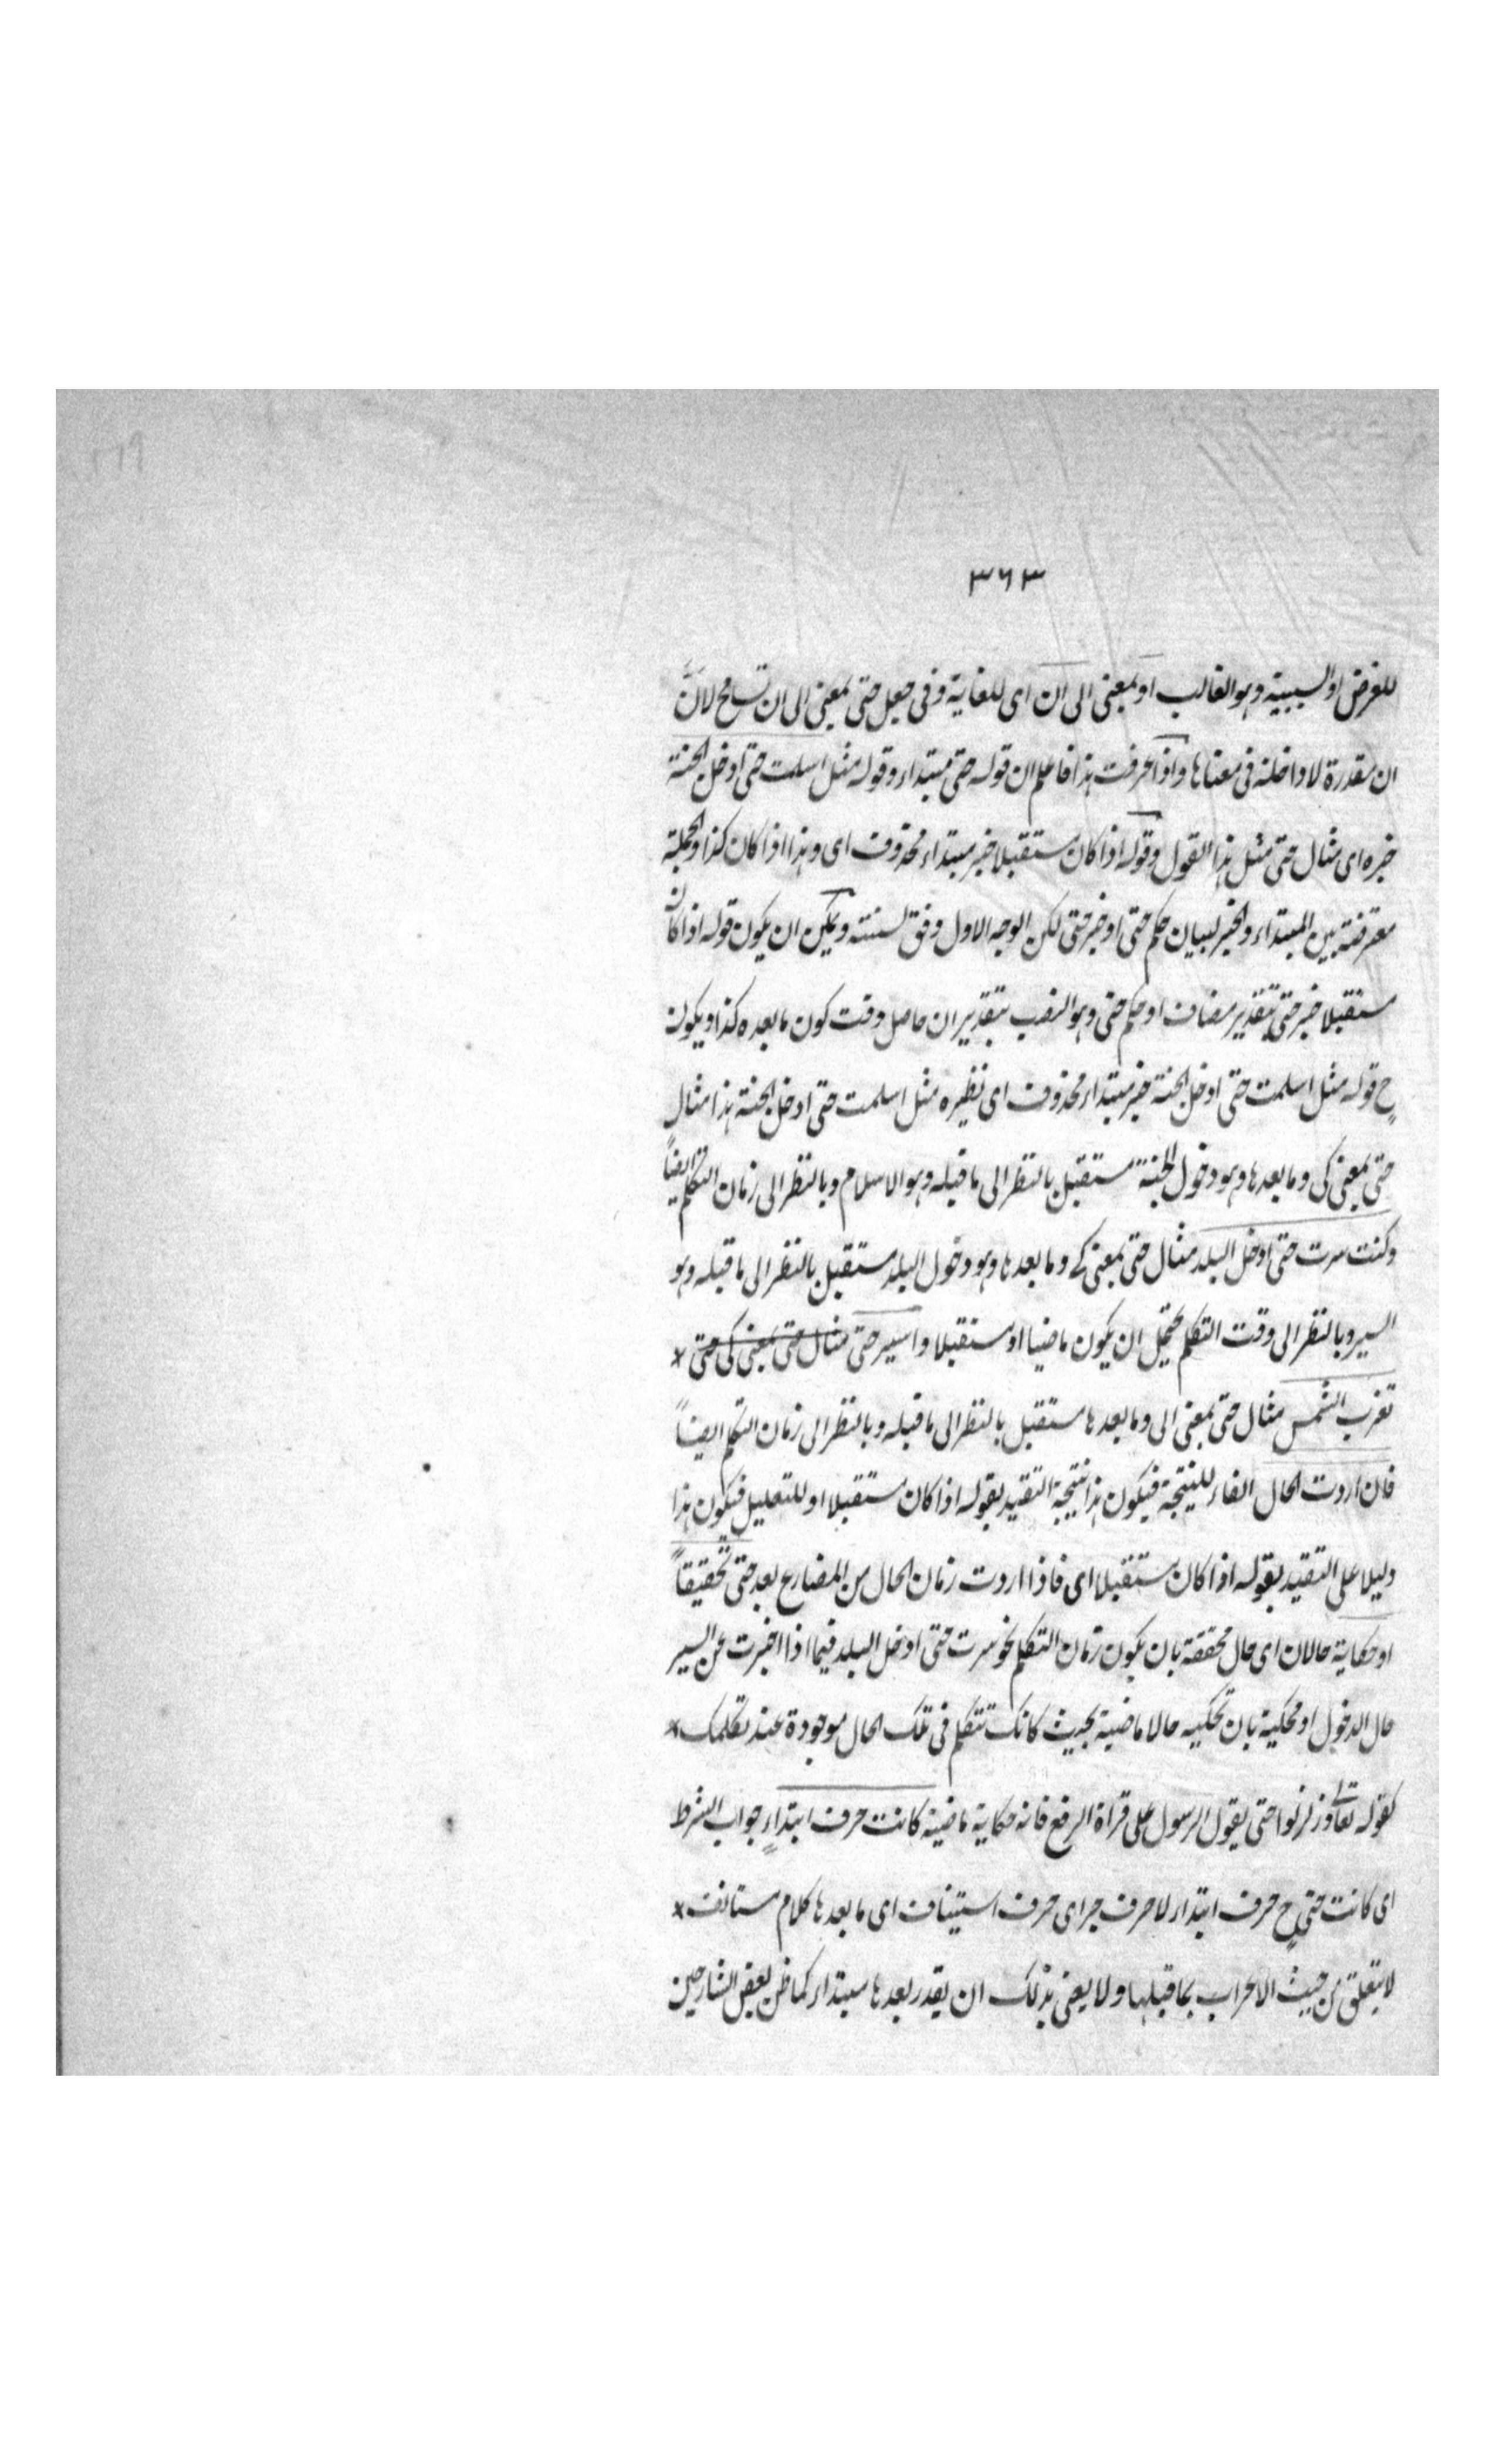 ٣٦٣
للغرض او السببية وهو الغالب او بمعنى الى ان اى للغاية وفى جعل حتى بمعنى الى ان تسامح لانّ
ان مقدرة لا داخلة فى معناها واذا عرفت هذا فاعلم ان قوله حتى مبتداء وقوله مثل اسلمت حتى ادخل الجنة
خبره اى مثال حتى مثل هذا القول وقوله اذا كان مستقبلا خبر مبتداء محذوف اى وهذا اذا كان كذا والجملة
معترضة بين المبتداء والخبر لبيان حكم حتى او خبر حتى لكن الوجه الاول وفق لسننه ويمكن ان يكون قوله اذا كان
مستقبلا خبر حتى بتقدير مضاف او حكم حتى وهو النصب بتقدير ان حاصل وقت كون ما بعده كذا ويكون
ح قوله مثل اسلمت حتى ادخل الجنة خبر مبتداء محذوف اى نظيره مثل اسلمت حتى ادخل الجنة هذا مثال
حتى بمعنى كى وما بعدها وهو دخول الجنة مستقبل بالنظر الى ما قبله وهو الاسلام وبالنظر الى زمان التكلم ايضاً
وكنت سرت حتى ادخل البلد مثال حتى بمعنى كے وما بعدها وهو دخول البلد مستقبل بالنظر الى ما قبله وهو
السير وبالنظر الى وقت التكلم يحتمل ان يكون ماضيا او مستقبلا واسير حتى مثال حتى بمعنى كى حتى *
تغرب الشمس مثال حتى بمعنى الى وما بعدها مستقبل بالنظر الى ما قبله وبالنظر الى زمان التكلم ايضاً
فان اردت الحال الفاء للنتيجة فيكون هذا نتيجة التقييد بقوله اذا كان مستقبلا او للتعليل فيكون هذا
دليلا على التقييد بقوله اذا كان مستقبلا اى فاذا اردت زمان الحال من المضارع بعد حتى تحقيقاً
او حكاية حالان اى حال محققة بان يكون زمان التكلم نحو سرت حتى ادخل البلد فيما اذا اخبرت عن السير
حال الدخول او محكية بان تحكيه حالا ماضية بحيث كانك تتكلم فى تلك الحال موجودة عند تكلمك *
كقوله تعالى وزلزلوا حتى يقول الرسول على قراة الرفع فانه حكاية ماضية كانت حرف ابتداءٍ جواب الشرط
اى كانت حتى ح حرف ابتداء لا حرف جر اى حرف استيناف اى ما بعدها كلام مستانف *
لا يتعلق من حيث الاعراب بما قبلها ولا يعنى بذلك ان يقدر بعدها مبتداء كما ظن بعض الشارحين